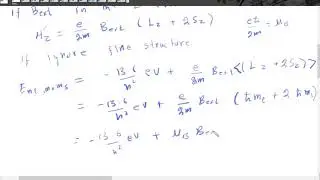 If B_ext in
H'_Z = e/2m B_ext (L_z + 2S_z) eħ/2m = μ_B
If ignore fine structure
E_{n l m_l m_s} = -13.6/n² eV + e/2m B_ext <(L_z + 2S_z)>
= -13.6/n² eV + e/2m B_ext (ħm_l + 2ħm_s)
= -13.6/n² eV + μ_B B_ext